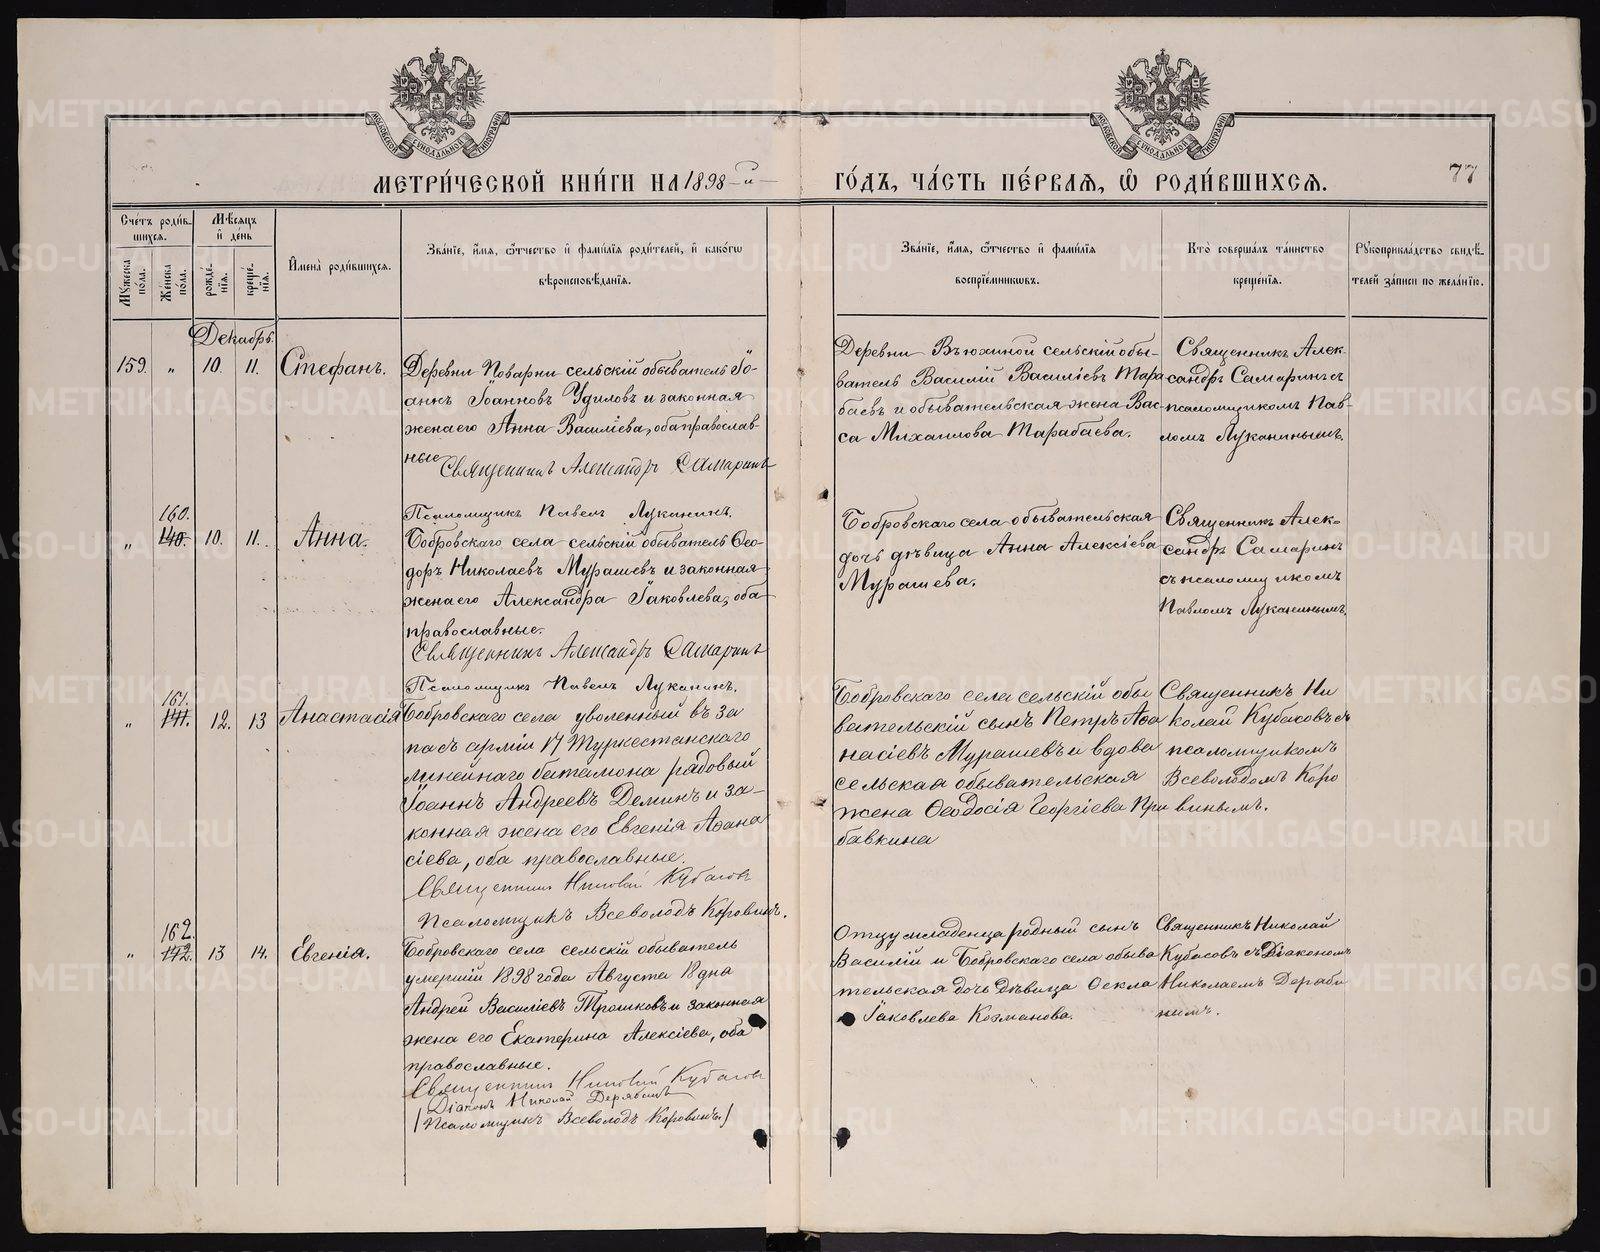 МЕТРИ́ЧЕСКОЙ КНИ́ГИ НА 1898-й
ГО́ДЪ, ЧА́СТЬ ПЕ́РВАЯ, Ѿ РОДИ́ВШИХСЯ.
77
Сче́тъ роди́в-
шихся.
Мѣ́сяцъ
и҆ де́нь
Му́жеска
по́ла.
Же́нска
по́ла.
рожде́-
нїя.
креще́-
нїя.
И҆мена̀ роди́вшихся.
Зва́нїе, и҆́мя, ѻ҆́тчество и҆ фами́лїя роди́телей, и҆ како́гѡ
вѣроисповѣ́данїя.
Зва́нїе, и҆́мя, ѻ҆́тчество и҆ фами́лїя
воспрїе́мникѡвъ.
Кто̀ соверша́лъ та́инство
креще́нїя.
Рꙋкоприкла́дство свидѣ́-
телей за́писи по жела́нїю.
Декабрь.
159. „ 10. 11. Стефанъ.
Деревни Поварни сельскій обыватель Іо-
аннъ Іоанновъ Удиловъ и законная
жена его Анна Василіева, оба православ-
ные
Священникъ Александръ Самаринъ
Псаломщикъ Павелъ Луканинъ.
Деревни Вьюхиной сельскій обы-
ватель Василій Василіевъ Тара
баевъ и обывательская жена Вас-
са Михаилова Тарабаева.
Священникъ Алек-
сандръ Самаринъ съ
псаломщикомъ Пав-
ломъ Луканинымъ.
160.
„ 140. 10. 11. Анна.
Бобровскаго села сельскій обыватель Ѳео-
доръ Николаевъ Мурашевъ и законная
жена его Александра Іаковлева, оба
православные.
Священникъ Александръ Самаринъ
Псаломщикъ Павелъ Луканинъ.
Бобровскаго села обывательская
дочь дѣвица Анна Алексіева
Мурашева.
Священникъ Алек-
сандръ Самаринъ
съ псаломщикомъ
Павломъ Луканинымъ.
161.
„ 141. 12. 13 Анастасія
Бобровскаго села уволенный въ за
пасъ арміи 17 Туркестанскаго
линейнаго баталіона рядовый
Іоаннъ Андреевъ Деминъ и за-
конная жена его Евгенія Аѳана
сіева, оба православные.
Священникъ Николай Кубасовъ
Псаломщикъ Всеволодъ Коровинъ.
Бобровскаго села сельскій обы
вательскій сынъ Петръ Аѳа
насіевъ Мурашевъ и вдова
сельская обывательская
жена Ѳеодосія Георгіева При
бавкина
Священникъ Ни
колай Кубасовъ съ
псаломщикомъ
Всеволодомъ Коро
винымъ.
162.
„ 142. 13 14. Евгенія.
Бобровскаго села сельскій обыватель
умершій 1898 года Августа 18 дня
Андрей Василіевъ Трошковъ и законная
жена его Екатерина Алексіева, оба
православные.
Священникъ Николай Кубасовъ
Діаконъ Николай Дерябинъ
(Псаломщикъ Всеволодъ Коровинъ.)
Отцу младенца родный сынъ
Василій и Бобровскаго села обыва
тельская дочь дѣвица Ѳекла
Іаковлева Козманова.
Священникъ Николай
Кубасовъ съ Діакономъ
Николаемъ Деряби
нымъ.